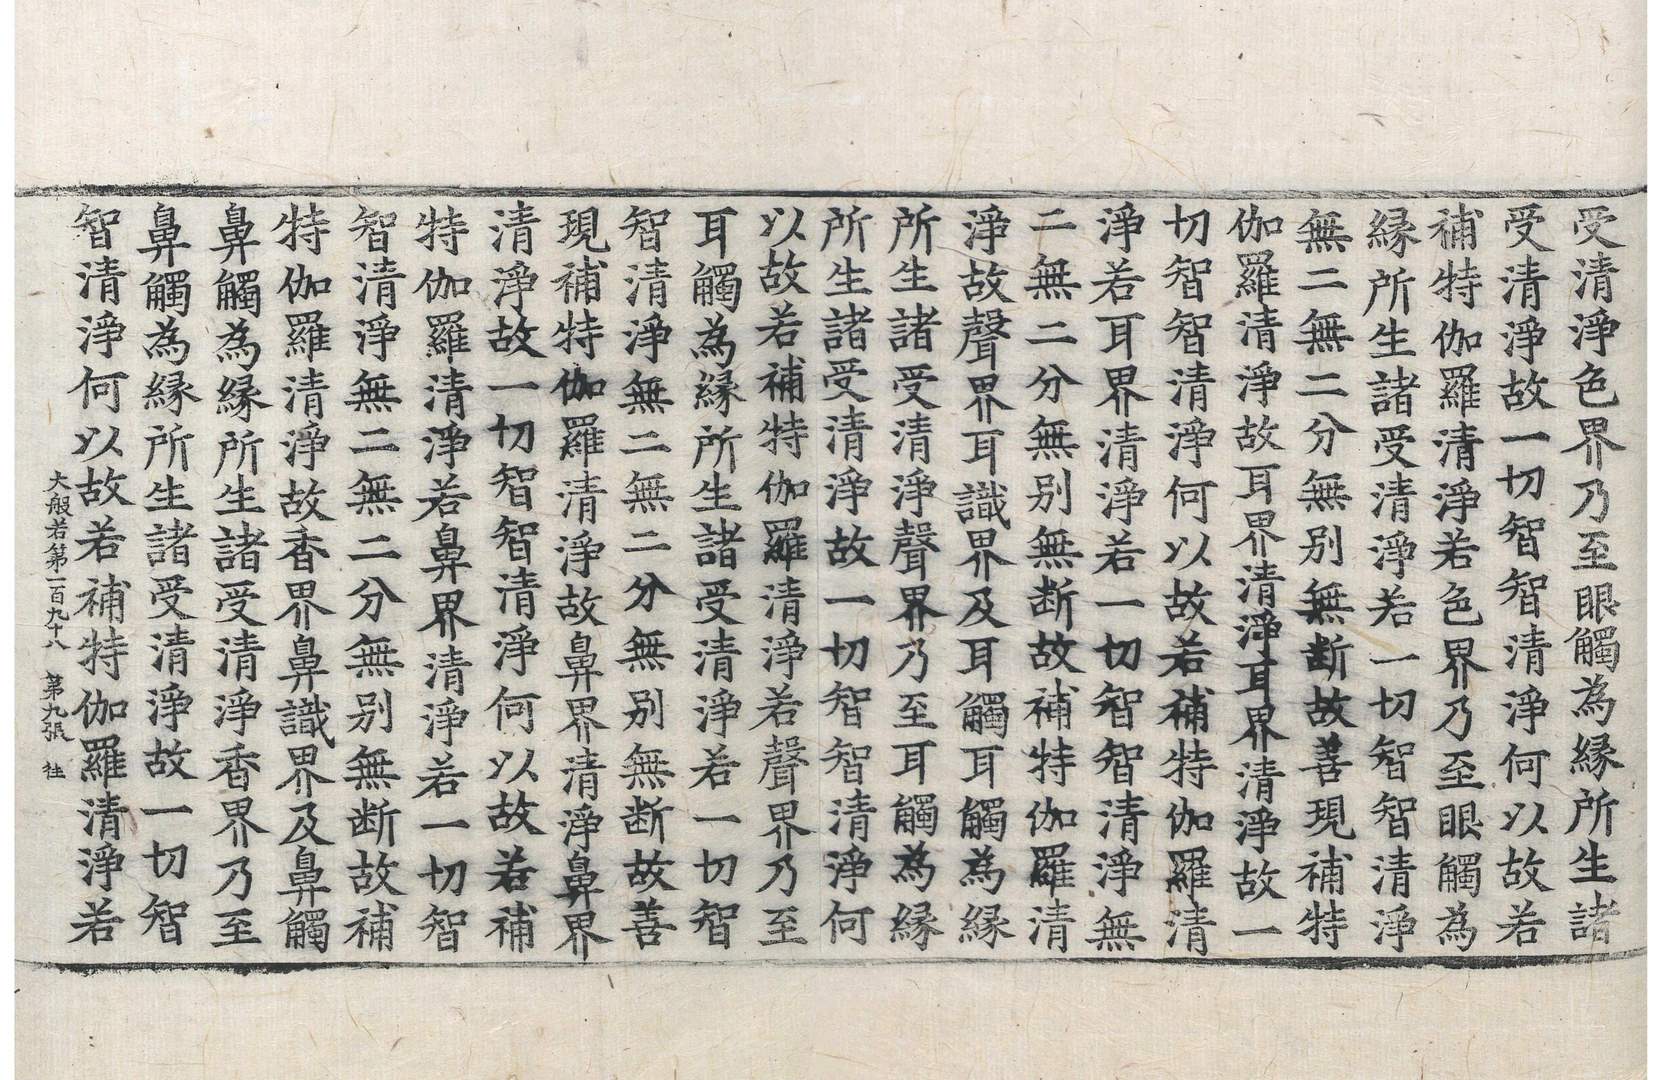 受清淨色界乃至眼觸為縁所生諸
受清淨故一切智智清淨何以故若
補特伽羅清淨若色界乃至眼觸為
縁所生諸受清淨若一切智智清淨
無二無二分無别無断故善現補特
伽羅清淨故耳界清淨耳界清淨故一
切智智清淨何以故若補特伽羅清
淨若耳界清淨若一切智智清淨無
二無二分無别無断故補特伽羅清
淨故聲界耳識界及耳觸耳觸為縁
所生諸受清淨聲界乃至耳觸為縁
所生諸受清淨故一切智智清淨何
以故若補特伽羅清淨若聲界乃至
耳觸為縁所生諸受清淨若一切智
智清淨無二無二分無别無断故善
現補特伽羅清淨故鼻界清淨鼻界
清淨故一切智智清淨何以故若補
特伽羅清淨若鼻界清淨若一切智
智清淨無二無二分無别無断故補
特伽羅清淨故香界鼻識界及鼻觸
鼻觸為縁所生諸受清淨香界乃至
鼻觸為縁所生諸受清淨故一切智
智清淨何以故若補特伽羅清淨若
大般若第一百九十八 第九張 徃